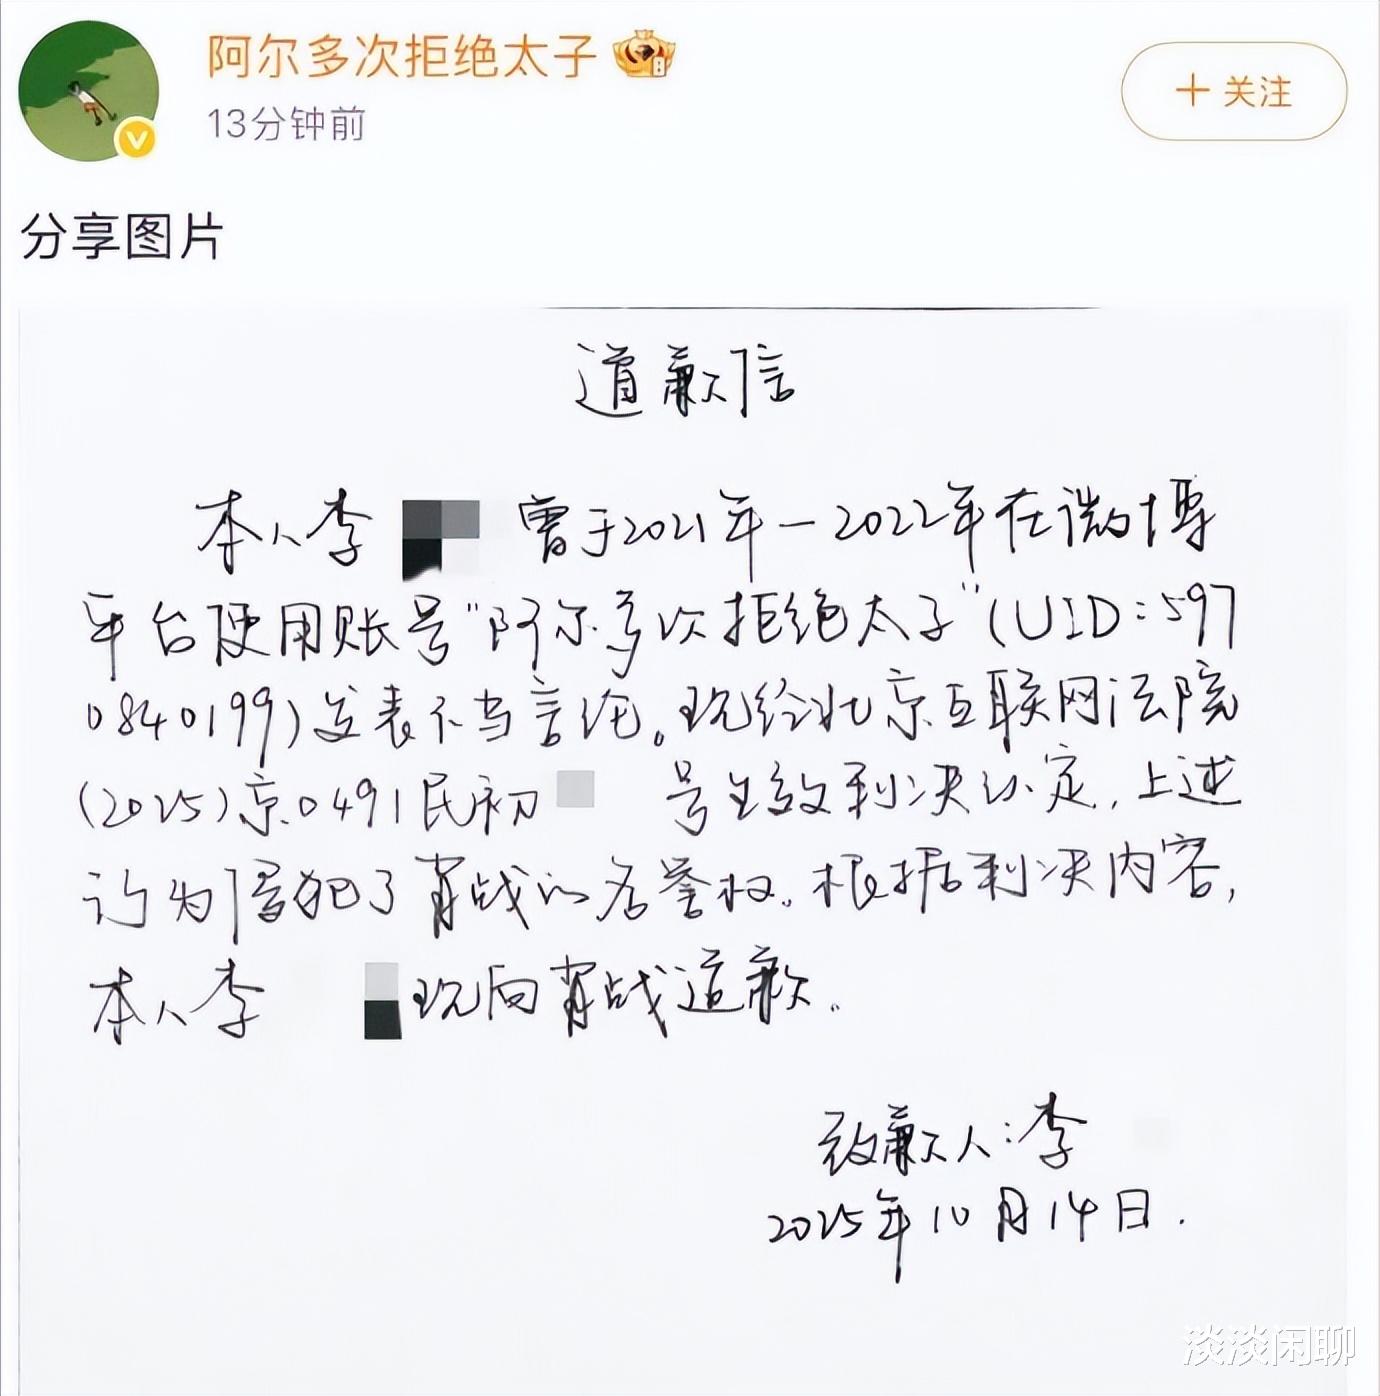 阿尔多次拒绝太子
13分钟前
+ 关注
分享图片
道歉信
本人李 曾于2021年-2022年在微博
平台使用账号"阿尔多次拒绝太子"(UID:597
0840199)发表不当言论。现经北京互联网法院
(2025)京0491民初 号生效判决认定,上述
行为侵犯了肖战的名誉权。根据判决内容,
本人李 现向肖战道歉。
致歉人:李
2025年10月14日.
淡淡闲聊